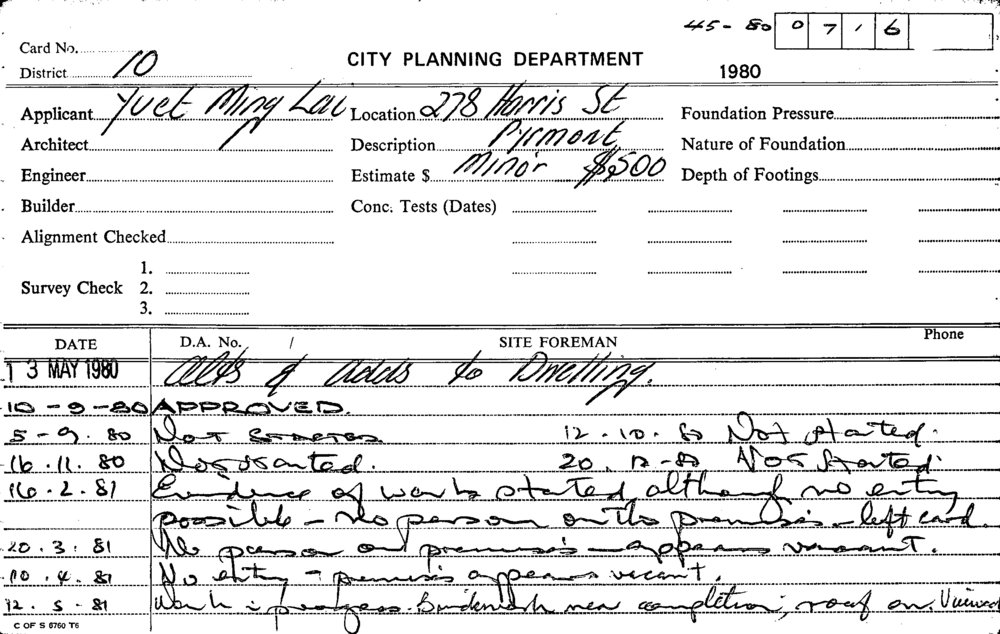 45-80 0716
Card No.
CITY PLANNING DEPARTMENT
District 10
1980
Applicant Yuet Ming Lau Location 278 Harris St Foundation Pressure
Architect Description Pyrmont Nature of Foundation
Engineer Estimate $ Minor $500 Depth of Footings
Builder Conc. Tests (Dates)
Alignment Checked
1.
Survey Check 2.
3.
DATE D.A. No. / SITE FOREMAN Phone
13 MAY 1980 Alts & adds to Dwelling.
10-9-80 APPROVED.
5-9.80 Not Started 12.10.80 Not started.
16.11.80 Not started. 20.12-80 Not Started
16.2.81 Evidence of work started although no entry
possible - No person on the premises - left card.
20.3.81 No person on premises - appears vacant.
10.4.81 No entry - premises appears vacant.
12.5.81 Work in progress. near completion, roof on. Viewed
C OF S 6760 T6